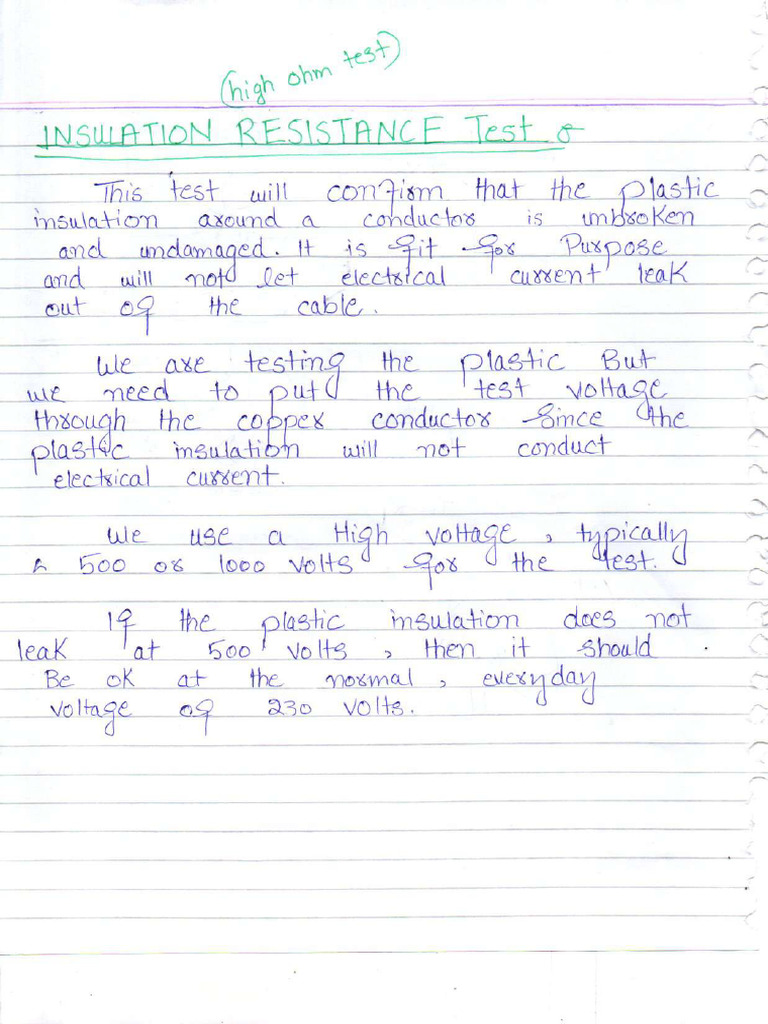 (high ohm test)
INSULATION RESISTANCE Test :-
This test will confirm that the plastic
insulation around a conductor is unbroken
and undamaged. It is fit for Purpose
and will not let electrical current leak
out of the cable.
We are testing the plastic But
we need to put the test voltage
through the copper conductor since the
plastic insulation will not conduct
electrical current.
We use a High voltage, typically
500 or 1000 volts for the test.
If the plastic insulation does not
leak at 500 volts, then it should
Be ok at the normal, everyday
voltage of 230 volts.